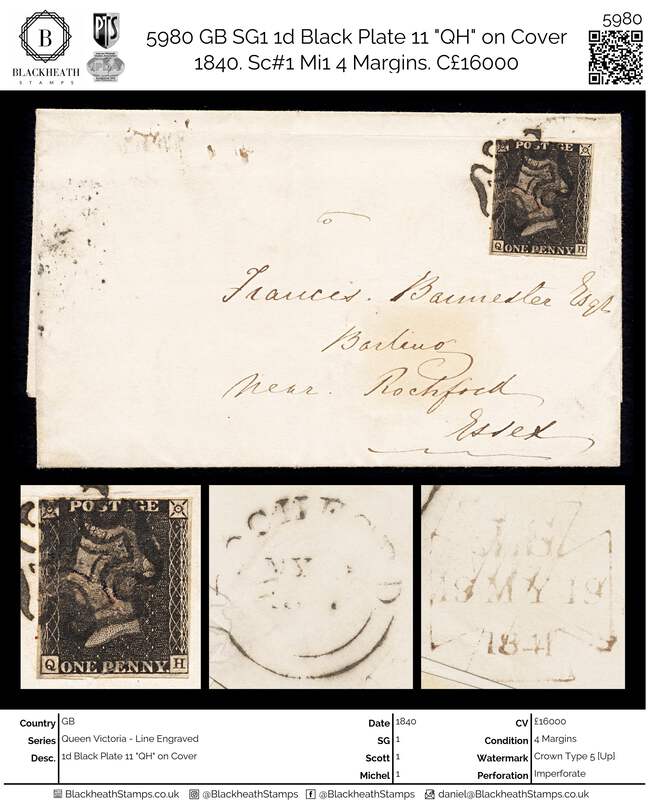 5980
B
BLACKHEATH
STAMPS
PTS
5980 GB SG1 1d Black Plate 11 "QH" on Cover
1840. Sc#1 Mi1 4 Margins. C£16000
POSTAGE
Q ONE PENNY H
Francis. Bannester Esqr
Barling
Near. Rochford
Essex
POSTAGE
Q ONE PENNY H
MY
MY 19
1841
Country GB
Series Queen Victoria - Line Engraved
Desc. 1d Black Plate 11 "QH" on Cover
Date 1840
SG 1
Scott 1
Michel 1
CV £16000
Condition 4 Margins
Watermark Crown Type 5 [Up]
Perforation Imperforate
BlackheathStamps.co.uk @BlackheathStamps @BlackheathStamps daniel@BlackheathStamps.co.uk